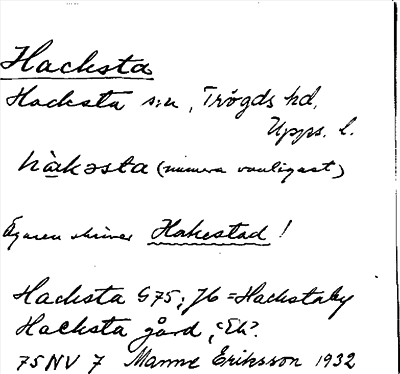 Hacksta
Hacksta sn, Trögds hd,
Upps. l.
hàkəsta (numera vanligast)
Ägaren skriver Hakestad !
Hacksta G75; Jb = Hackstaby
Hacksta gård,
75 NV 7 Manne Eriksson 1932